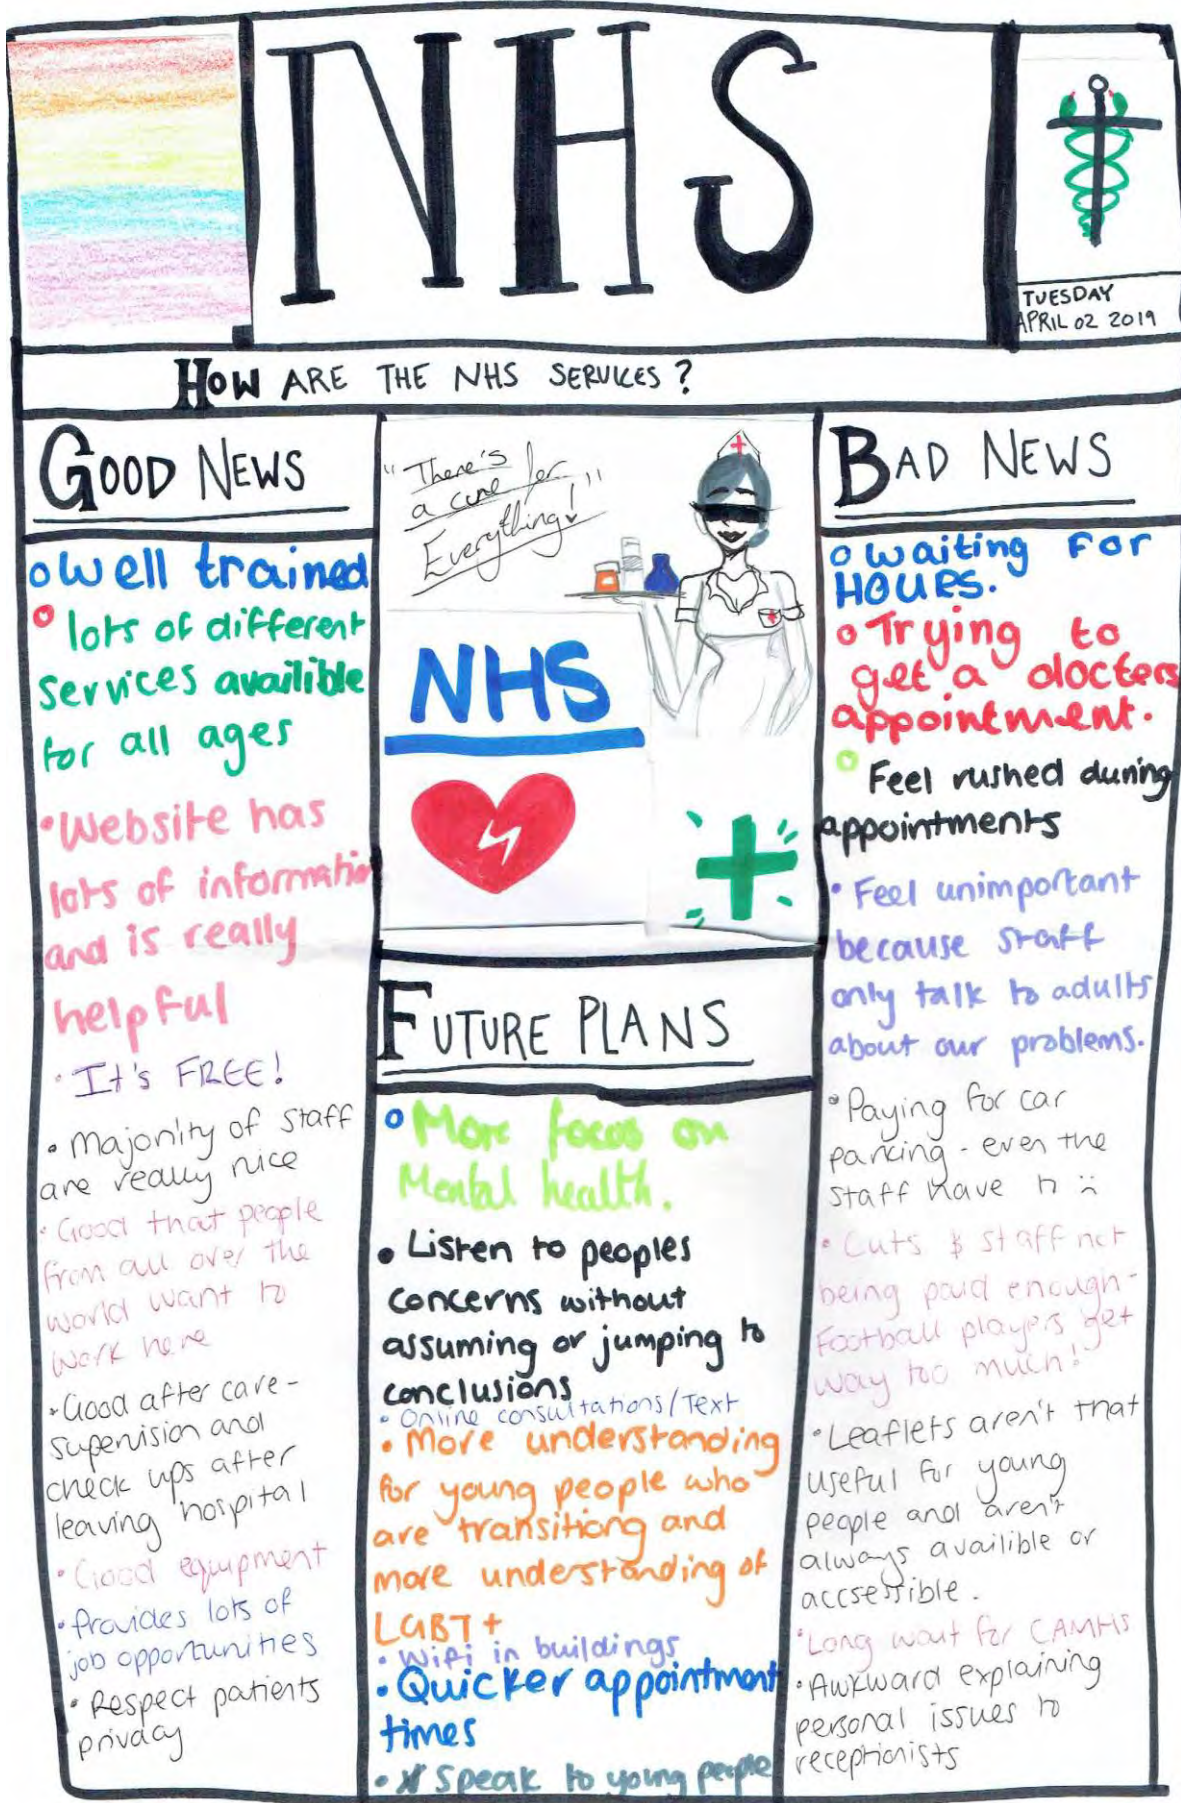 NHS
TUESDAY
APRIL 02 2019
HOW ARE THE NHS SERVICES?
GOOD NEWS
• Well trained
• lots of different
services availible
for all ages
• Website has
lots of information
and is really
helpful
• It's FREE!
• Majority of staff
are really nice
• Good that people
from all over the
world want to
work here
• Good after care -
supervision and
check ups after
leaving hospital
• Good equipment
• Provides lots of
job opportunities
• Respect patients
privacy
"There's
a cure for
Everything!"
NHS
FUTURE PLANS
• More focus on
Mental health.
• Listen to peoples
concerns without
assuming or jumping to
conclusions
• Online consultations/Text
• More understanding
for young people who
are transitiong and
more understanding of
LGBT+
• Wifi in buildings
• Quicker appointment
times
• Speak to young people
BAD NEWS
• Waiting For
HOURS.
• Trying to
get a docters
appointment.
• Feel rushed during
appointments
• Feel unimportant
because staff
only talk to adults
about our problems.
• Paying for car
parking - even the
staff have to :(
• Cuts & staff not
being paid enough -
Football players get
way too much!
• Leaflets aren't that
useful for young
people and aren't
always availible or
accsessible.
• Long wait for CAMHS
• Awkward explaining
personal issues to
receptionists